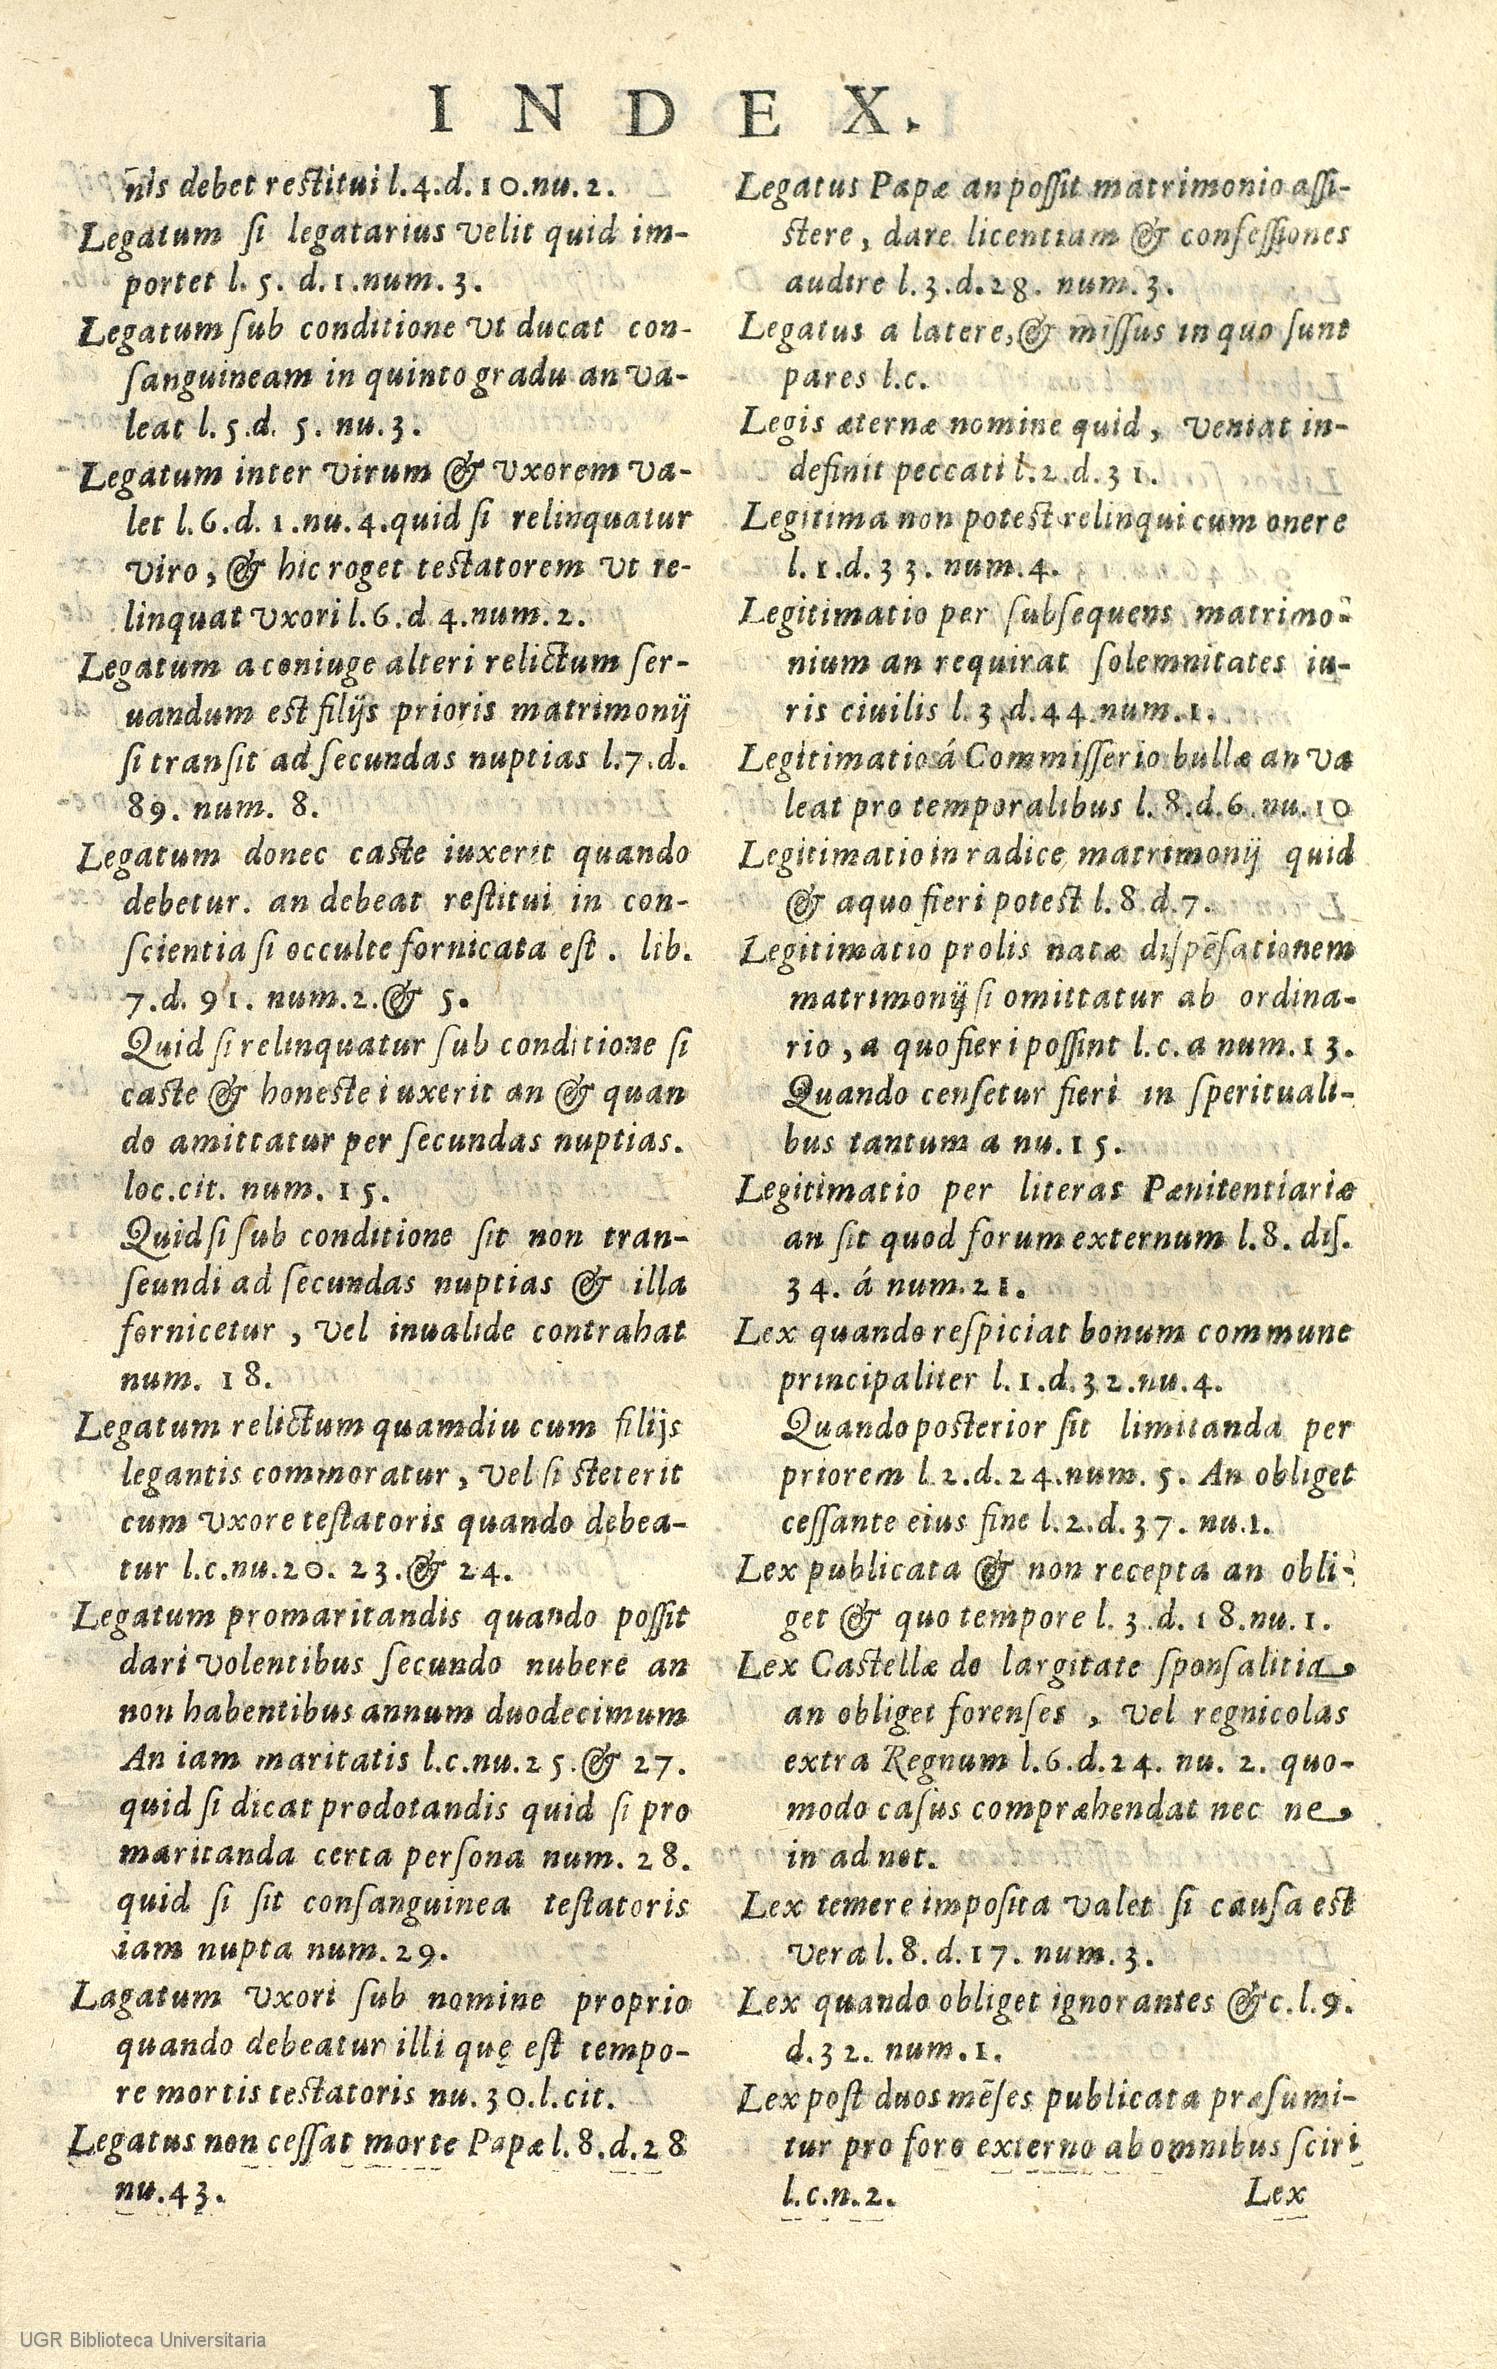 INDEX.
nis debet restitui l.4.d.10.nu.2.
Legatum si legatarius velit quid im-
portet l. 5. d.1.num.3.
Legatum sub conditione vt ducat con-
sanguineam in quinto gradu an va-
leat l.5.d. 5. nu.3.
Legatum inter virum & vxorem va-
let l.6.d.1.nu.4.quid si relinquatur
viro, & hic roget testatorem vt re-
linquat vxori l.6.d 4.num.2.
Legatum a coniuge alteri relictum ser-
uandum est filijs prioris matrimonij
si transit ad secundas nuptias l.7.d.
89. num. 8.
Legatum donec caste iuxerit quando
debetur. an debeat restitui in con-
scientia si occulte fornicata est. lib.
7.d. 91. num.2.& 5.
Quid si relinquatur sub conditione si
caste & honeste iuxerit an & quan
do amittatur per secundas nuptias.
loc.cit. num. 15.
Quid si sub conditione sit non tran-
seundi ad secundas nuptias & illa
fornicetur, vel inualide contrahat
num. 18.
Legatum relictum quamdiu cum filijs
legantis commoratur, vel si steterit
cum vxore testatoris quando debea-
tur l.c.nu.20. 23.& 24.
Legatum promaritandis quando possit
dari volentibus secundo nubere an
non habentibus annum duodecimum
An iam maritatis l.c.nu.25.& 27.
quid si dicat prodotandis quid si pro
maritanda certa persona num. 28.
quid si sit consanguinea testatoris
iam nupta num.29.
Lagatum vxori sub nomine proprio
quando debeatur illi quę est tempo-
re mortis testatoris nu.30.l.cit.
Legatus non cessat morte Papæ l.8.d.28
nu.43.
Legatus Papæ an possit matrimonio assi-
stere, dare licentiam & confessiones
audire l.3.d.28. num.3.
Legatus a latere,& missus in quo sunt
pares l.c.
Legis æternæ nomine quid, veniat in-
definit peccati l.2.d.31.
Legitima non potest relinqui cum onere
l.1.d.33. num.4.
Legitimatio per subsequens matrimo-
nium an requirat solemnitates iu-
ris ciuilis l.3.d.44.num.1.
Legitimatio á Commisserio bullæ an va
leat pro temporalibus l.8.d.6.nu.10
Legitimatio in radice matrimonij quid
& aquo fieri potest l.8.d.7.
Legitimatio prolis natæ dispēsationem
matrimonij si omittatur ab ordina-
rio, a quo fieri possint l.c.a num.13.
Quando censetur fieri in sperituali-
bus tantum a nu.15.
Legitimatio per literas Pænitentiariæ
an sit quod forum externum l.8. dis.
34. á num.21.
Lex quando respiciat bonum commune
principaliter l.1.d.32.nu.4.
Quando posterior sit limitanda per
priorem l.2.d.24.num. 5. An obliget
cessante eius fine l.2.d.37. nu.1.
Lex publicata & non recepta an obli-
get & quo tempore l.3.d.18.nu.1.
Lex Castellæ de largitate sponsalitia
an obliget forenses, vel regnicolas
extra Regnum l.6.d.24. nu. 2. quo-
modo casus compræhendat nec ne
in ad not.
Lex temere imposita valet si causa est
vera l.8.d.17. num.3.
Lex quando obliget ignorantes &c.l.9.
d.32. num.1.
Lex post duos mēses publicata præsumi-
tur pro foro externo ab omnibus sciri
l.c.n.2.
Lex
UGR Biblioteca Universitaria